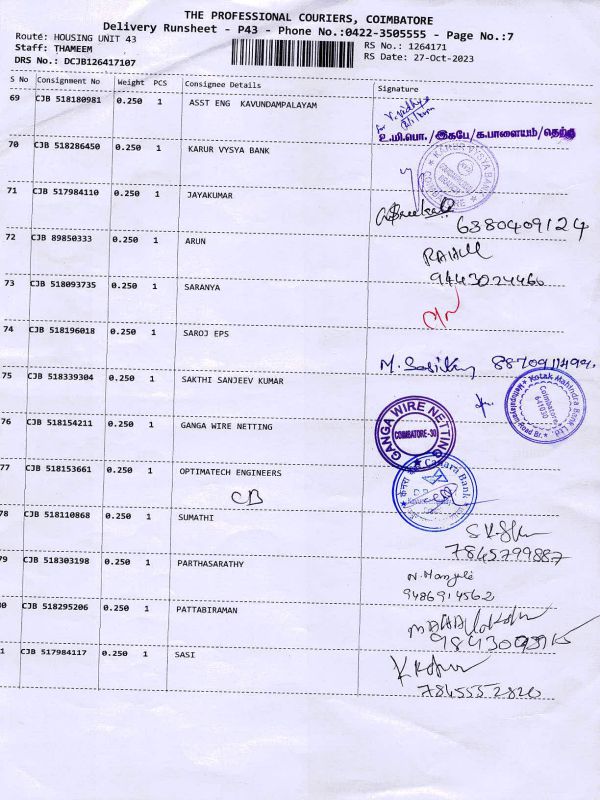 THE PROFESSIONAL COURIERS, COIMBATORE
Delivery Runsheet - P43 - Phone No.:0422-3505555 - Page No.:7
Route: HOUSING UNIT 43
RS No.: 1264171
Staff: THAMEEM
RS Date: 27-Oct-2023
DRS No.: DCJB126417107
S No Consignment No Weight PCS Consignee Details Signature
69 CJB 518180981 0.250 1 ASST ENG KAVUNDAMPALAYAM
உ.மி.பொ./இகபே/க.பாளையம்/தெற்கு
70 CJB 518286450 0.250 1 KARUR VYSYA BANK
KARUR VYSYA BANK
COIMBATORE
71 CJB 517984110 0.250 1 JAYAKUMAR
6380409124
72 CJB 89850333 0.250 1 ARUN
RAHUL
9443024466
73 CJB 518093735 0.250 1 SARANYA
74 CJB 518196018 0.250 1 SAROJ EPS
M.
75 CJB 518339304 0.250 1 SAKTHI SANJEEV KUMAR
Kotak Mahindra Bank Ltd
Coimbatore
76 CJB 518154211 0.250 1 GANGA WIRE NETTING
GANGA WIRE NETTING
COIMBATORE-30
77 CJB 518153661 0.250 1 OPTIMATECH ENGINEERS
CB
Canara Bank
78 CJB 518110868 0.250 1 SUMATHI
7845799887
79 CJB 518303198 0.250 1 PARTHASARATHY
9486914562
0 CJB 518295206 0.250 1 PATTABIRAMAN
1 CJB 517984117 0.250 1 SASI
7845552820